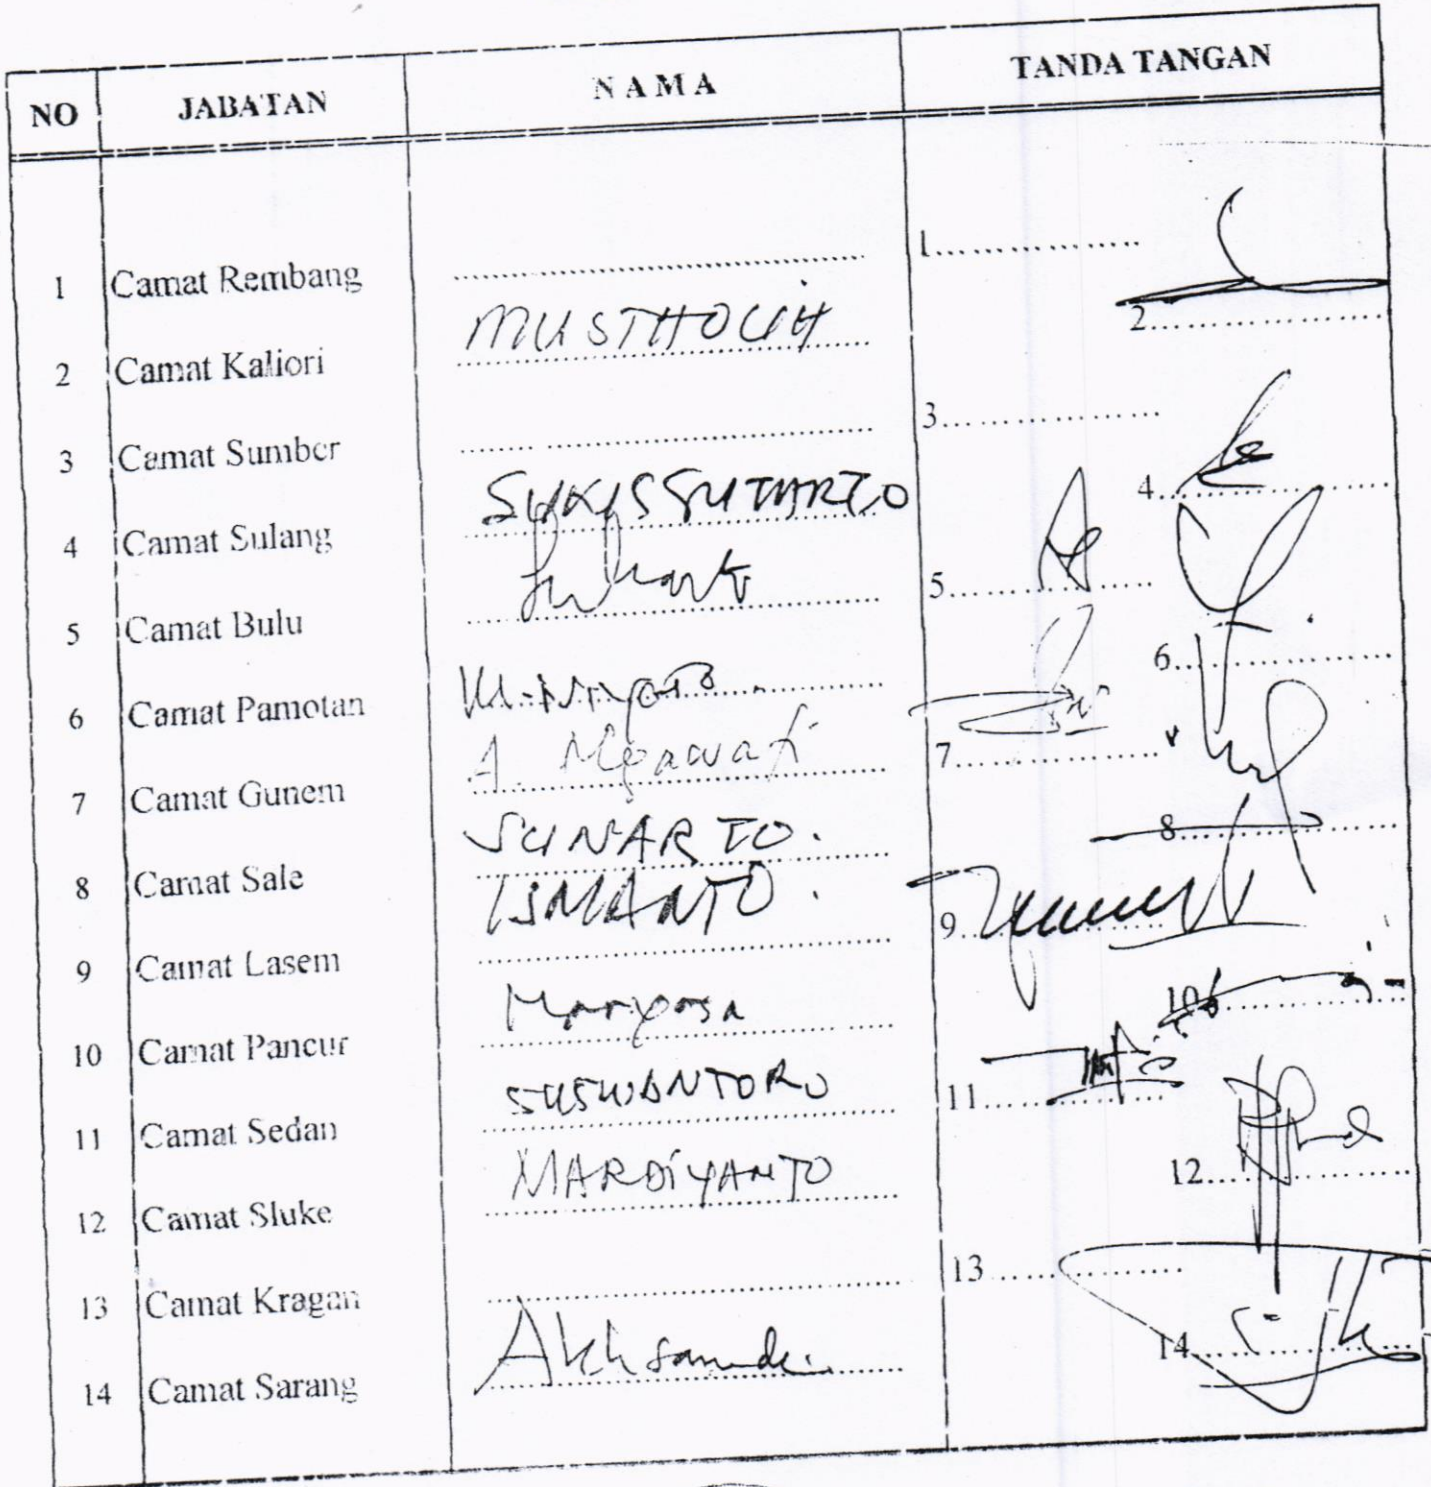 NO JABATAN N A M A TANDA TANGAN
1 Camat Rembang .................... 1....................
2 Camat Kaliori MUSTHOLIH 2....................
3 Camat Sumber .................... 3....................
4 Camat Sulang SUKIS SUTARTO 4....................
5 Camat Bulu 5....................
6 Camat Pamotan 6....................
7 Camat Gunem A. 7....................
8 Camat Sale SUNARTO. 8....................
9 Camat Lasem ISMANTO. 9....................
10 Camat Pancur 10....................
11 Camat Sedan SUSWANTORO 11....................
12 Camat Sluke MARDIYANTO 12....................
13 Camat Kragan .................... 13....................
14 Camat Sarang 14....................